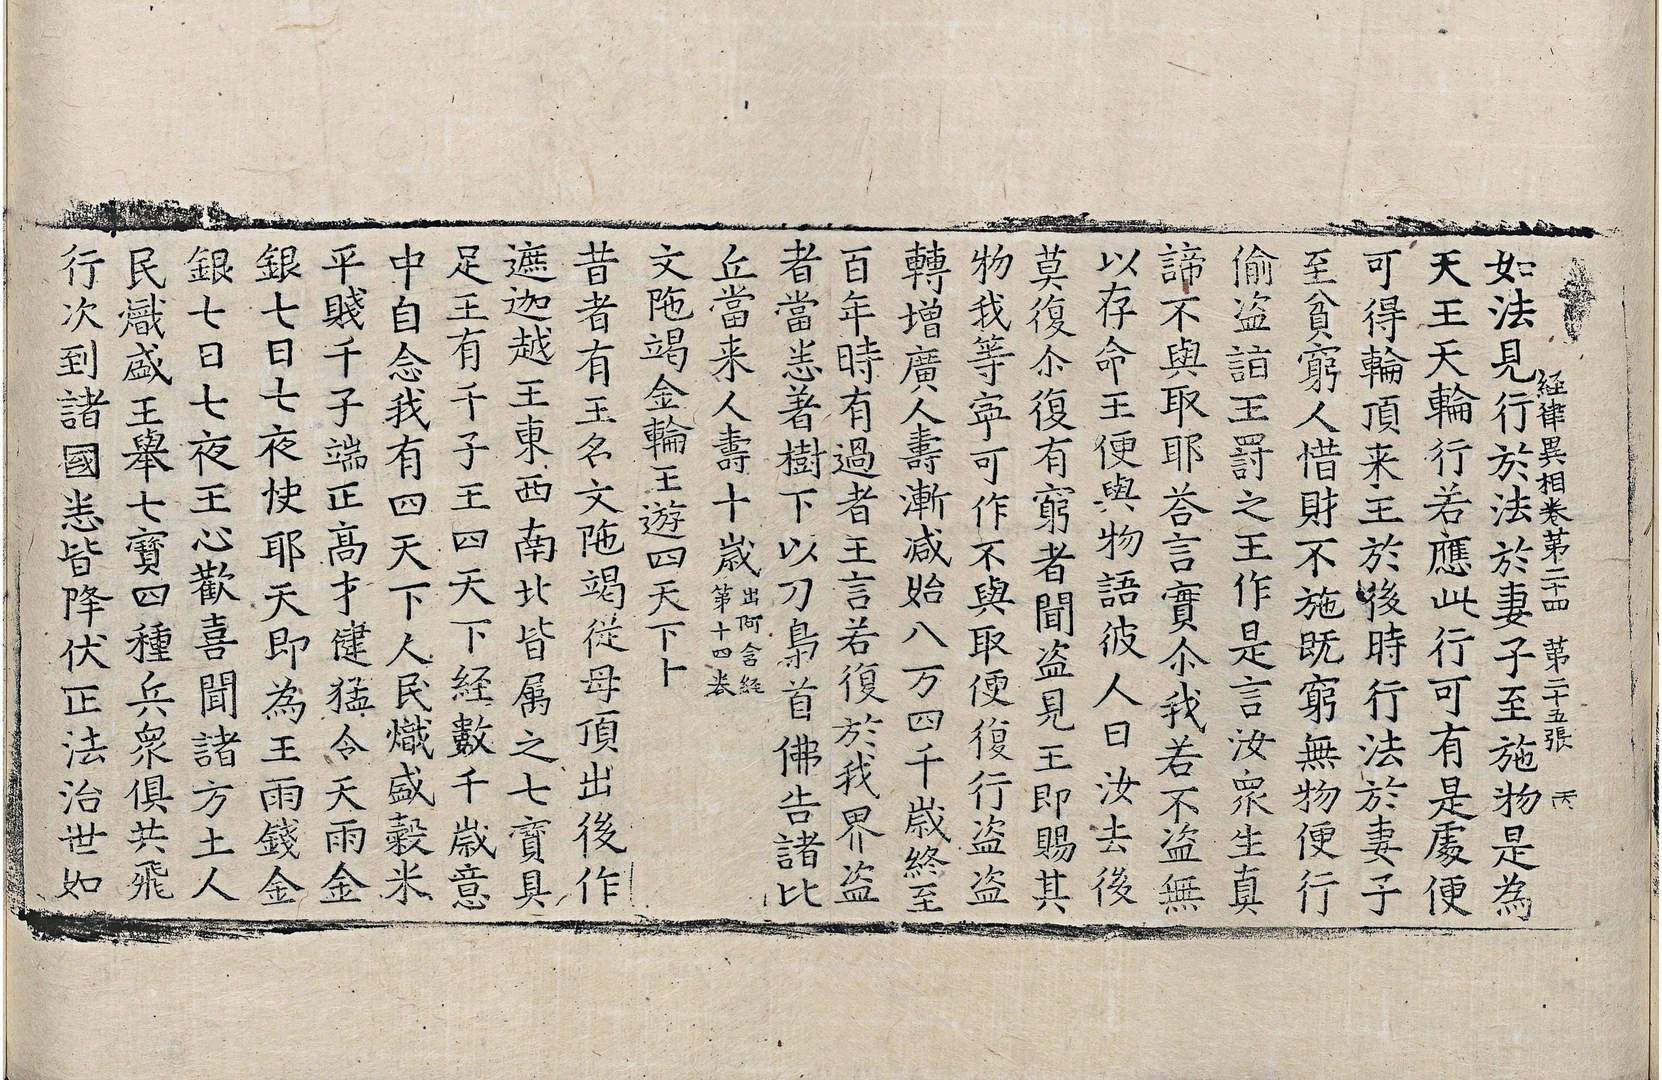 経律異相卷第二十四　第二十五張　丙
如法見行於法於妻子至施物是為
天王天輪行若應此行可有是處便
可得輪頂来王於後時行法於妻子
至貧窮人惜財不施既窮無物便行
偷盗詣王罸之王作是言汝衆生真
諦不與取耶荅言實尒我若不盗無
以存命王便與物語彼人曰汝去後
莫復尒復有窮者聞盗見王即賜其
物我等寧可作不與取便復行盗盗
轉增廣人壽漸減始八万四千歲終至
百年時有過者王言若復於我界盗
者當悉著樹下以刀梟首佛告諸比
丘當来人壽十歲出阿含経第十四卷
文陁竭金輪王遊四天下卜
昔者有王名文陁竭従母頂出後作
遮迦越王東西南北皆属之七寶具
足王有千子王四天下経數千歲意
中自念我有四天下人民熾盛穀米
平賤千子端正髙才健猛令天雨金
銀七日七夜快耶天即為王雨錢金
銀七日七夜王心歡喜聞諸方土人
民熾盛王舉七寶四種兵衆俱共飛
行次到諸國悉皆降伏正法治世如